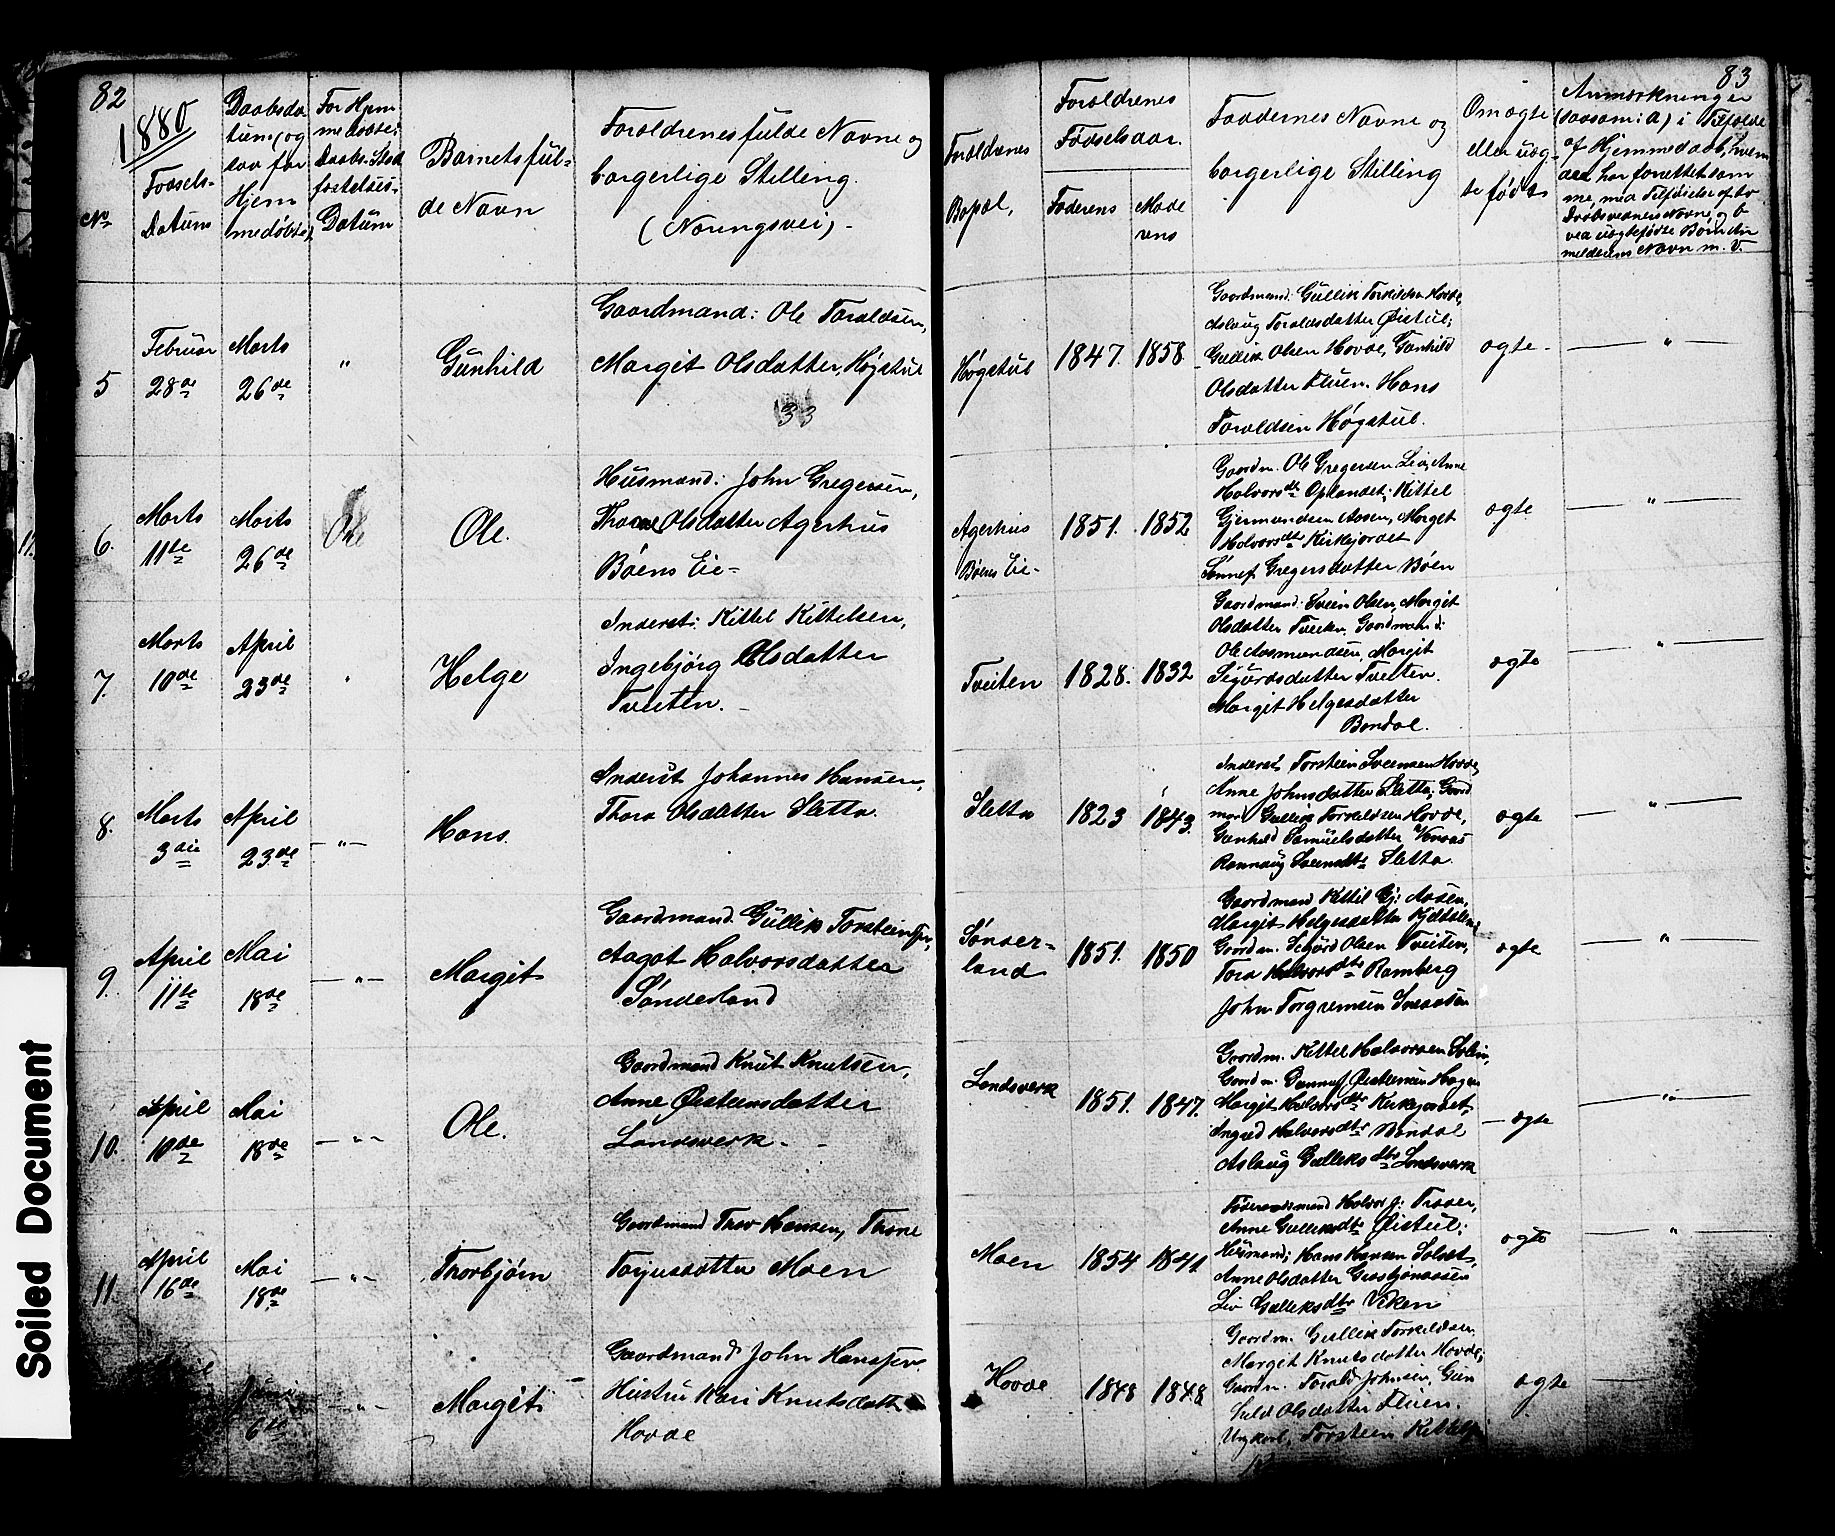 82
1880
No
Fødsels-
Datum
Daabsda
tum (og
Hjem
medøbte)
For Hjem
Datum
Barnets ful-
de Navn
Forældrenes fulde Navne og
borgerlige Stilling.
(Næringsvei).
Forældrenes
Bopæl,
Forældrenes
Fødselsaar.
Faderens
Mode
rens
Faddernes Navne og
borgerlige Stilling
Om ægte
eller uæg-
te født
83
Anmærkninger
(saasom: a) i Tilfælde
af Hjemmedaab, hvem
der har forrettet sam
me, med Tilføielse af to
Daabsvidners Navne, og b
ved uægtefødte Børn An
melderens Navn m. V.
5
Februar
28de
Marts
26de
"
Gunhild
Gaardmand: Ole Taraldsen,
Margit Olsdatter, Høgstul
33
Høgstul
1847.
1858
Gaardmand: Gullik Torkildsen Hovde,
Aslaug Taraldsdatter Øistul;
Gullik Olsen Hovde, Gunhild
Olsdatter Fluen. Hans
Taraldsen Høgstul.
ægte -
"
6.
Marts
11te
Marts
26de
Ole
Ole.
Husmand: John Gregersen,
Thone Olsdatter Agerhus
Bøens Eie -
Agerhus
Bøens Eie -
1851.
1852
Gaardm. Ole Gregersen Lia, Anne
Halvorsdtr Oplandet; Kittel
Gjermundsen Aasen, Margit
Halvorsdtr Kirkejordet
Gregersdatter Bøen
ægte
"
7.
Marts
10de
April
23de
"
Helge
Inderst: Kittel Kittelsen,
Ingebjörg Olsdatter
Tveiten. -
Tveiten
1828.
1832
Gaardmand: Svein Olsen, Margit
Olsdatter Tveiten, Gaardmand:
Ole Aasmundsen, Margit
Sigurdsdatter Tveiten.
Margit Helgesdatter
Bondal.
ægte
"
8.
Marts
3die
April
23de
- " -
Hans.
Inderst Johannes Hansen,
Thora Olsdatter Sletta.
Sletta
1823
1843.
Inderst Torstein Sveensen Hovde,
Anne Johnsdatter Sletta; Gaard
man Gullik Torkildsen Hovde,
Gunhild Samuelsdatter
Rannaug Sveensdtr Sletta.
ægte
"
9.
April
11te
Mai
18de
- " -
Margit
Gaardmand. Gullik Torsteinsen,
Aagot Halvorsdatter
Sønderland
Sønder-
land
1851.
1850
Gaardmand Kittil Gj: Aasen,
Margit Helgesdatter
Gaardm. Olsen Tveiten,
Tora Halvorsdtr Ramberg
John Torgrimsen
ægte
"
10.
April
10de
Mai
18de
- " -
Ole.
Gaardmand Knut Knutsen,
Anne Øisteinsdatter
Landsverk -
Landsverk
1851.
1847.
Gaardm. Kittel Halvorsen
Gaardm. Øisteinsen Hagen
Margit Halvorsdtr Kirkejordet,
Ingrid Halvorsdtr Bondal
Aslaug Gulleksdtr Landsverk
- ægte
"
11.
April
16de
Mai
18de
- " -
Thorbjørn
Gaardmand Thov Hansen, Thone
Torjusdatter Moen
Moen
1854
1841.
Føderaadsmand Halvor J: Traaen,
Anne Gulleksdtr Øistul;
Husmand; Hans Hansen
Anne Olsdatter
Liv Gulleksdtr Viken
ægte
"
Juni
6te
- " -
Margit
Gaardmand John Hanssen
Hustru Kari Knutsdatter
Hovde
Hovde
1848
1848
Gaardm. Gullik Torkildsen
Margit Knutsdatter Hovde;
Gaardm. Torald Johnsen, Gun
hild Olsdatter Fluen.
Ungkarl, Torstein
ægte
Soiled Document